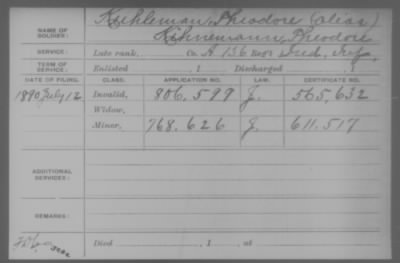 Kuhleman, Theodore (alias)
NAME OF SOLDIER: Kihnemann, Theodore
SERVICE: Late rank, Co. A 136 Reg't Ind. Inf.
TERM OF SERVICE: Enlisted , 1 Discharged , 1
DATE OF FILING. CLASS. APPLICATION NO. LAW. CERTIFICATE NO.
1890 July 12 Invalid, 806.599 J. 565,632
Widow,
Minor, 768.626 G. 611.517
ADDITIONAL SERVICES:
REMARKS:
Died , 1 , at